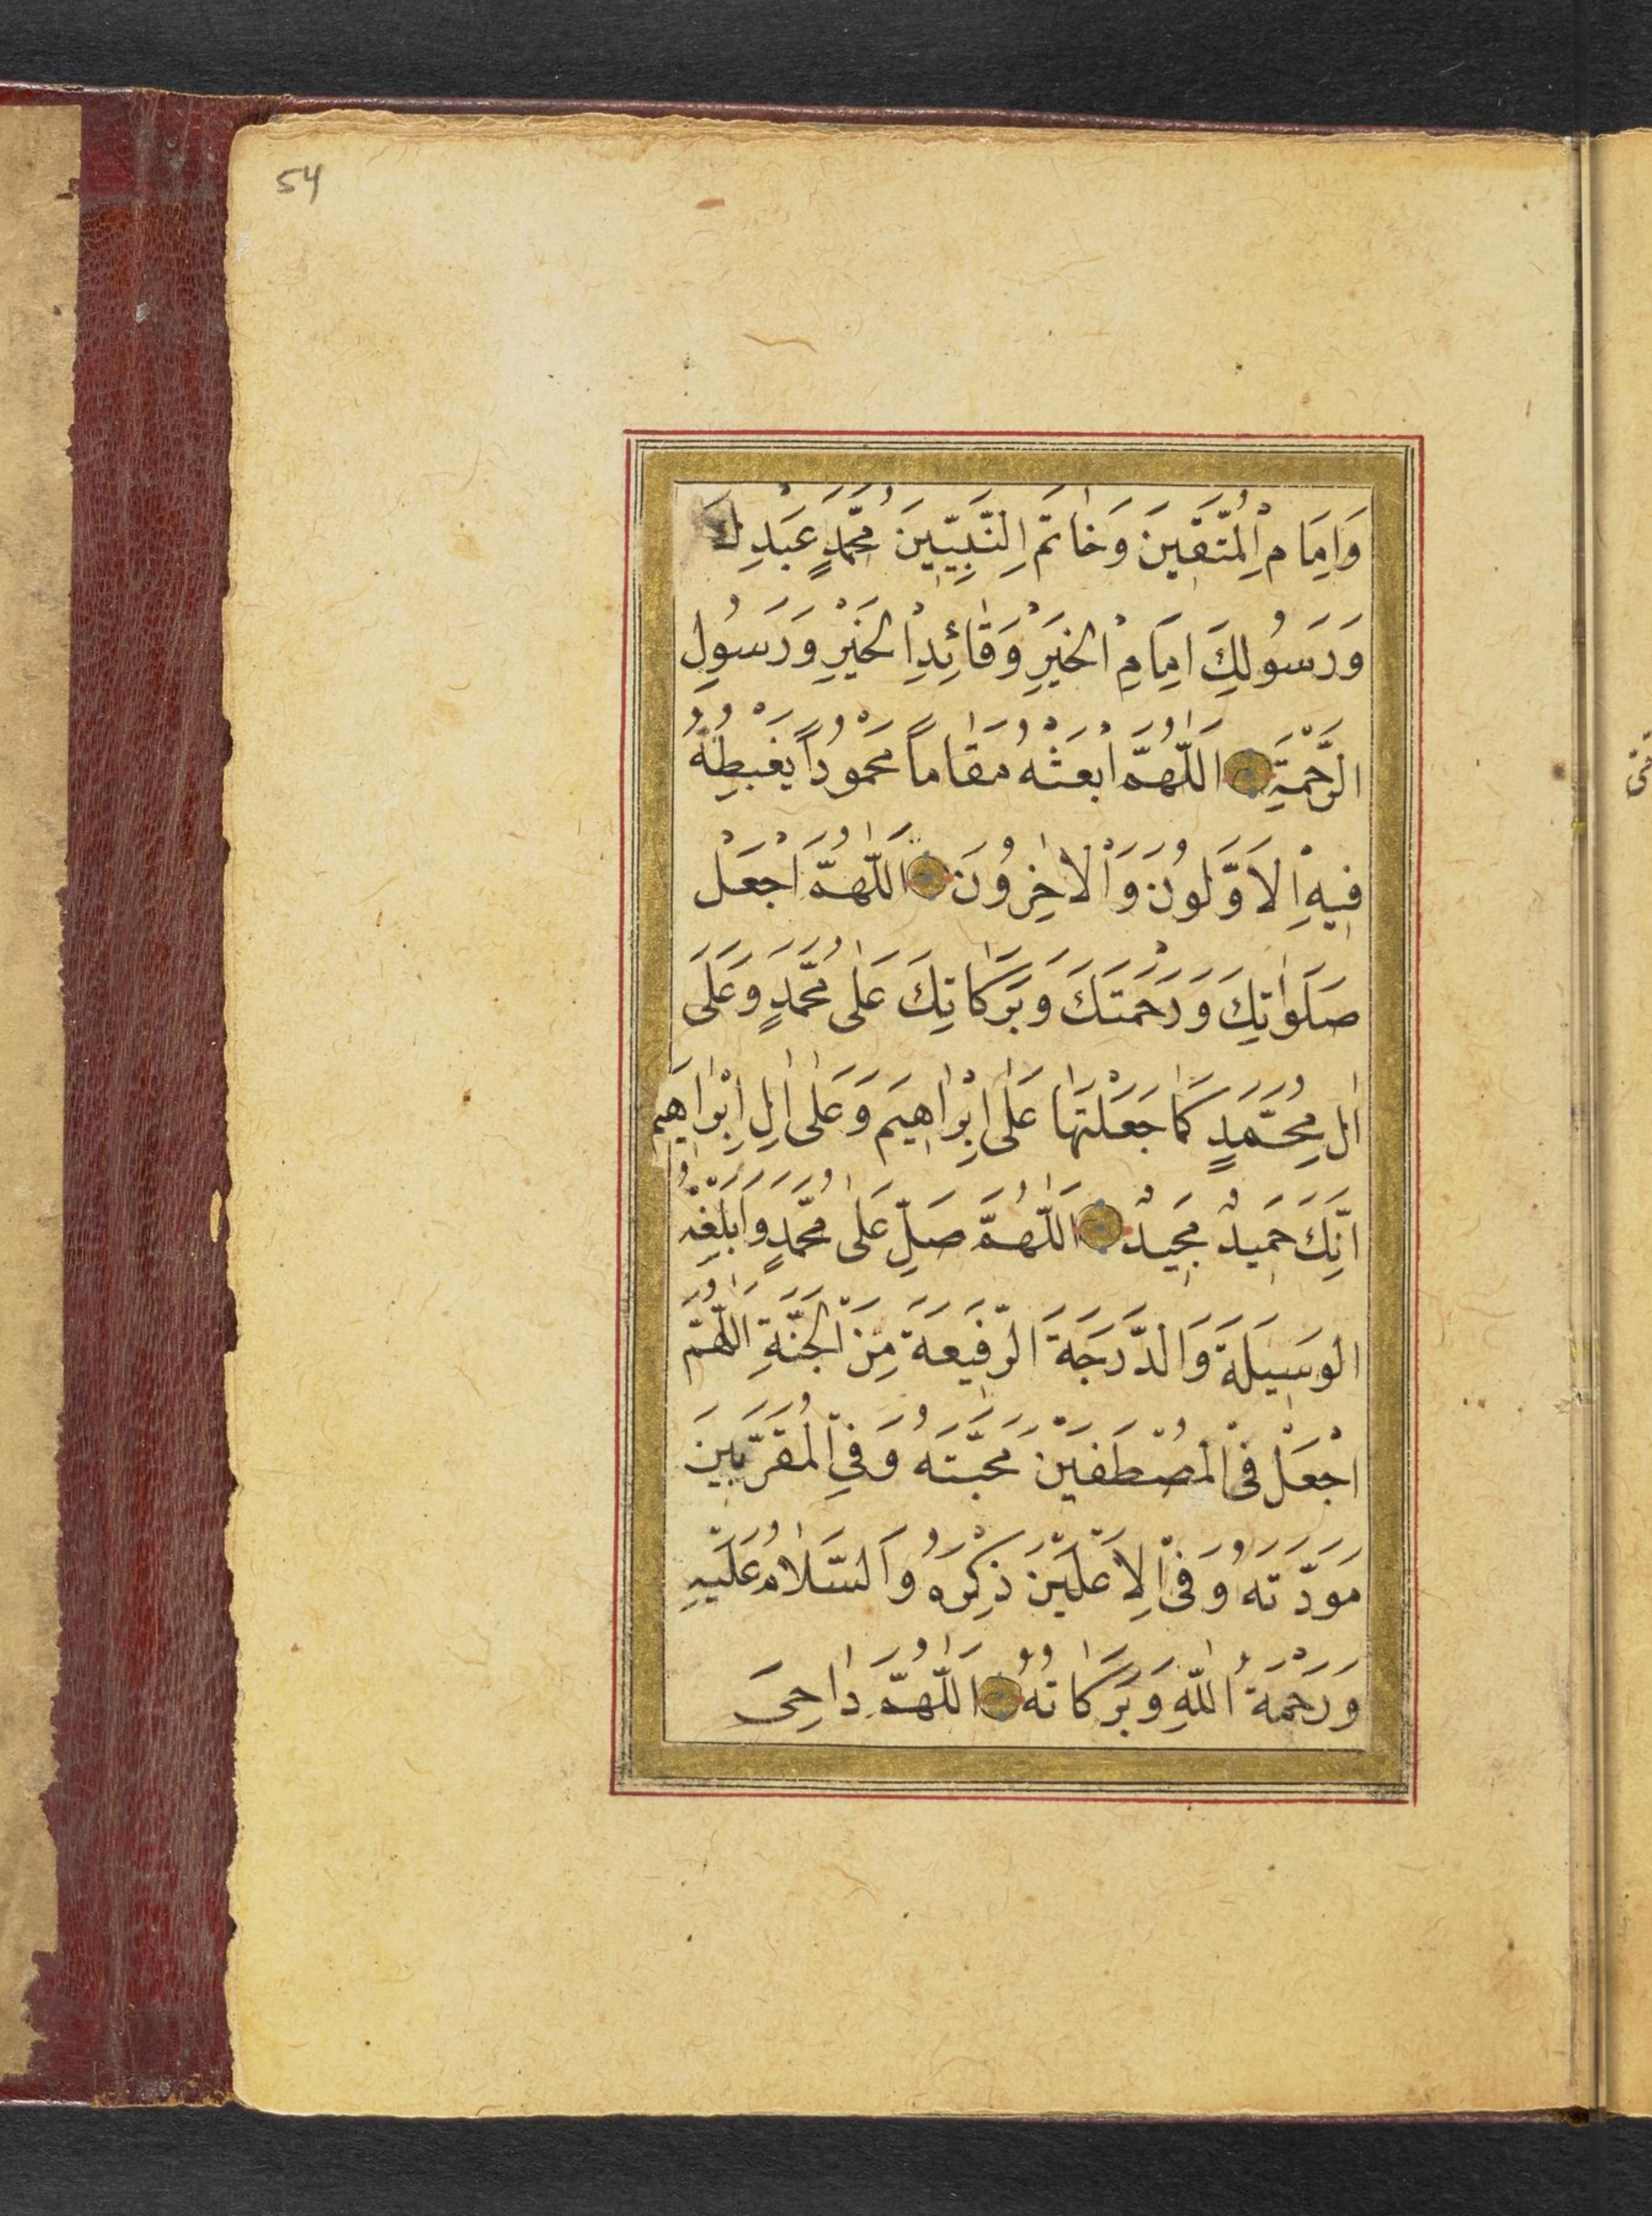 54
وَاِمَامِ الْمُتَّقِينَ وَخَاتَمِ النَّبِيِّينَ مُحَمَّدٍ عَبْدِكَ
وَرَسُولِكَ اِمَامِ الْخَيْرِ وَقَائِدِ الْخَيْرِ وَرَسُولِ
الرَّحْمَةِ اَللّٰهُمَّ ابْعَثْهُ مَقَامًا مَحْمُودًا يَغْبِطُهُ
فِيهِ الْاَوَّلُونَ وَالْاٰخِرُونَ اَللّٰهُمَّ اجْعَلْ
صَلَوَاتِكَ وَرَحْمَتَكَ وَبَرَكَاتِكَ عَلٰى مُحَمَّدٍ وَعَلَى
اٰلِ مُحَمَّدٍ كَمَا جَعَلْتَهَا عَلٰى اِبْرَاهِيمَ وَعَلٰى اٰلِ اِبْرَاهِيمَ
اِنَّكَ حَمِيدٌ مَجِيدٌ اَللّٰهُمَّ صَلِّ عَلٰى مُحَمَّدٍ وَاَبْلِغْهُ
الْوَسِيلَةَ وَالدَّرَجَةَ الرَّفِيعَةَ مِنَ الْجَنَّةِ اَللّٰهُمَّ
اجْعَلْ فِى الْمُصْطَفَيْنَ مَحَبَّتَهُ وَفِى الْمُقَرَّبِينَ
مَوَدَّتَهُ وَفِى الْاَعْلَيْنَ ذِكْرَهُ وَالسَّلَامُ عَلَيْهِ
وَرَحْمَةُ اللّٰهِ وَبَرَكَاتُهُ اَللّٰهُمَّ دَاحِىَ